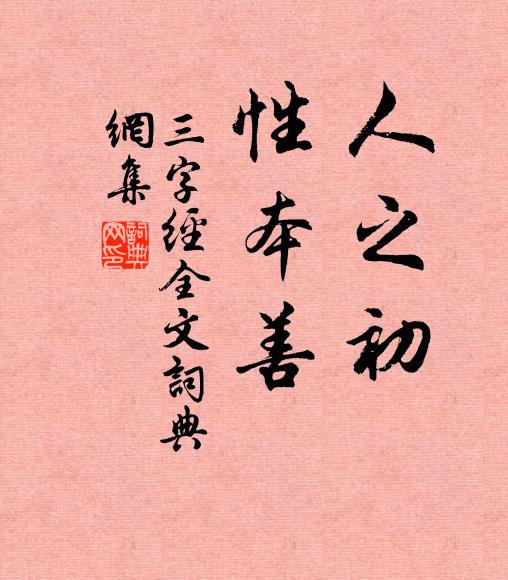 人之初
性本善
三字經全文詞典
網集
詞典网印